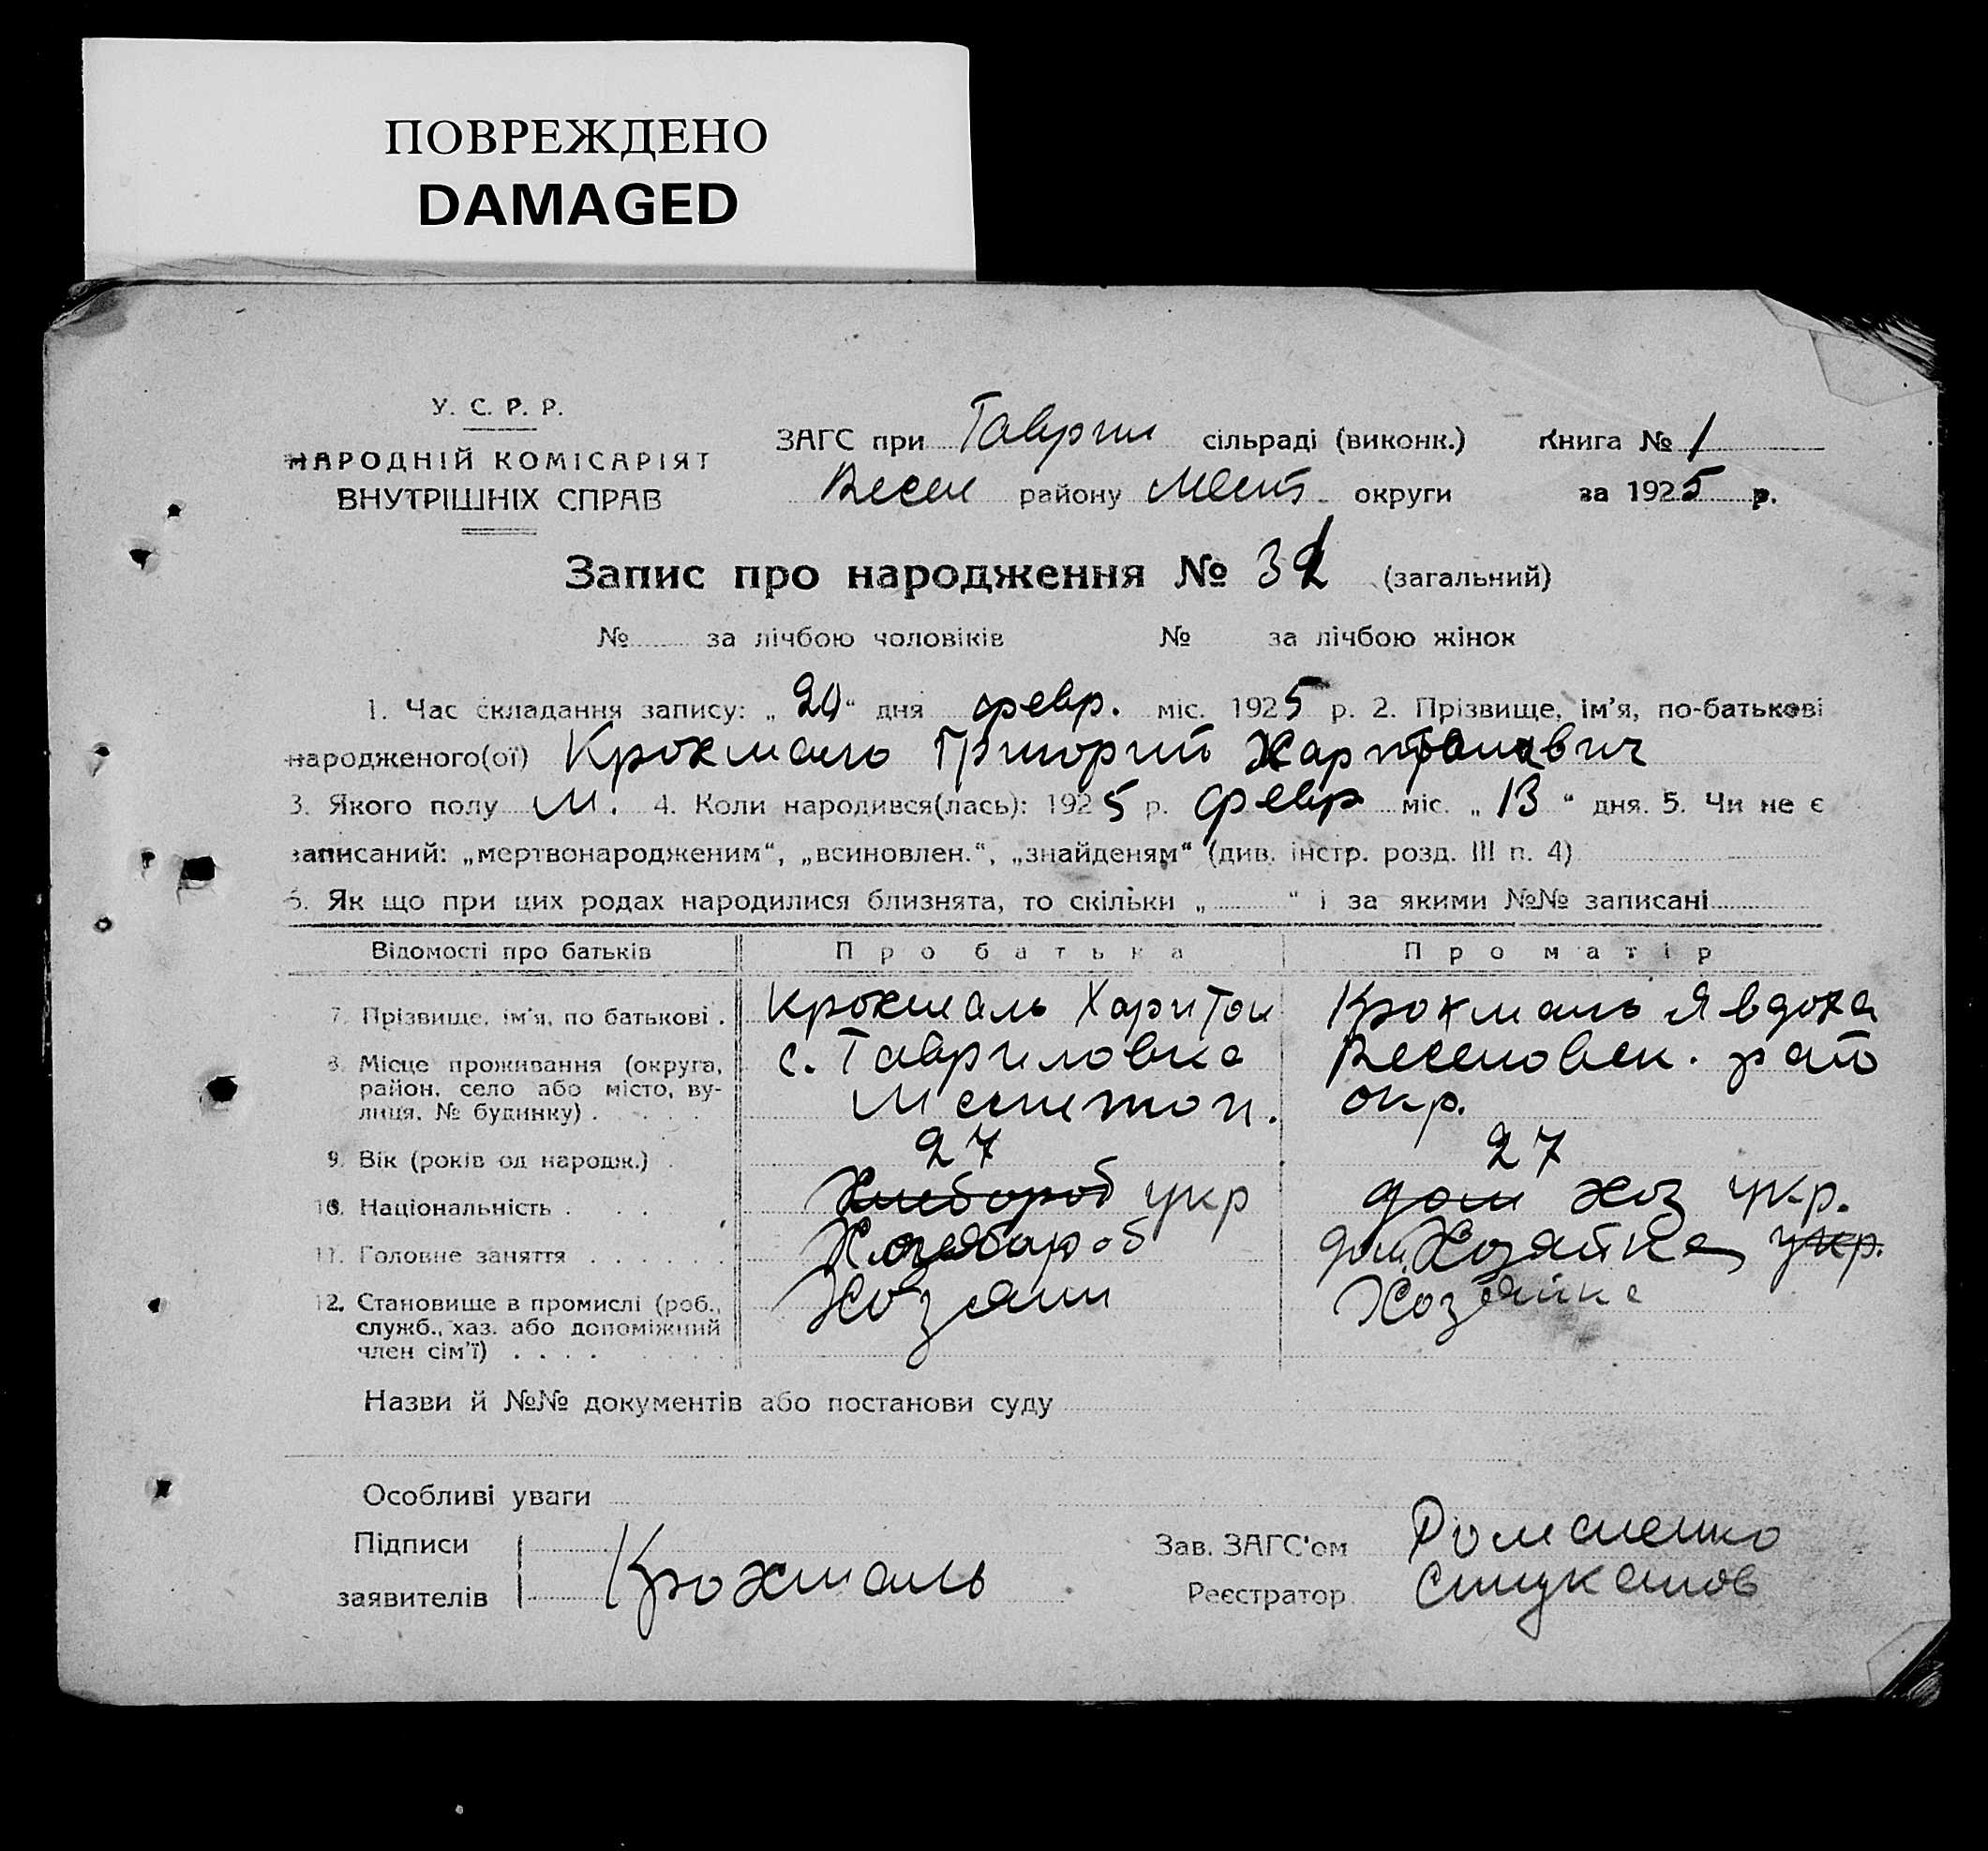 ПОВРЕЖДЕНО
DAMAGED
У. С. Р. Р.
НАРОДНІЙ КОМІСАРІЯТ
ВНУТРІШНІХ СПРАВ
ЗАГС при Гаврил сільраді (виконк.) Книга № 1
Весел району Меліт округи за 1925 р.
Запис про народження № 32 (загальний)
№ за лічбою чоловіків № за лічбою жінок
1. Час складання запису: „20“ дня февр. міс. 1925 р. 2. Прізвище, ім’я, по-батькові
народженого(ої) Крохмаль Григорий Харитонович
3. Якого полу М. 4. Коли народився(лась): 1925 р. февр міс. „13“ дня. 5. Чи не є
записаний: „мертвонародженим“, „всиновлен.“, „знайденям“ (див. інстр. розд. III п. 4)
6. Як що при цих родах народилися близнята, то скільки „ “ і за якими №№ записані
Відомості про батьків Про батька Про матір
7. Прізвище, ім’я, по батькові . Крохмаль Харитон Крохмаль Явдоха
8. Місце проживання (округа, с. Гавриловка Веселовск. райо
район, село або місто, ву-
лиця, № будинку) . Мелитоп. окр.
9. Вік (років од народж.) . 27 27
10. Національність . . . Хлебороб укр дом хоз укр.
11. Головне заняття . . . . . . Хлебороб дом. Хозяйка укр.
12. Становище в промислі (роб., Хозяин Хозяйка
служб., хаз. або допоміжний
член сім’ї) . . . .
Назви й №№ документів або постанови суду
Особливі уваги
Підписи
заявителів Крохмаль
Зав. ЗАГС’ом Романенко
Реєстратор